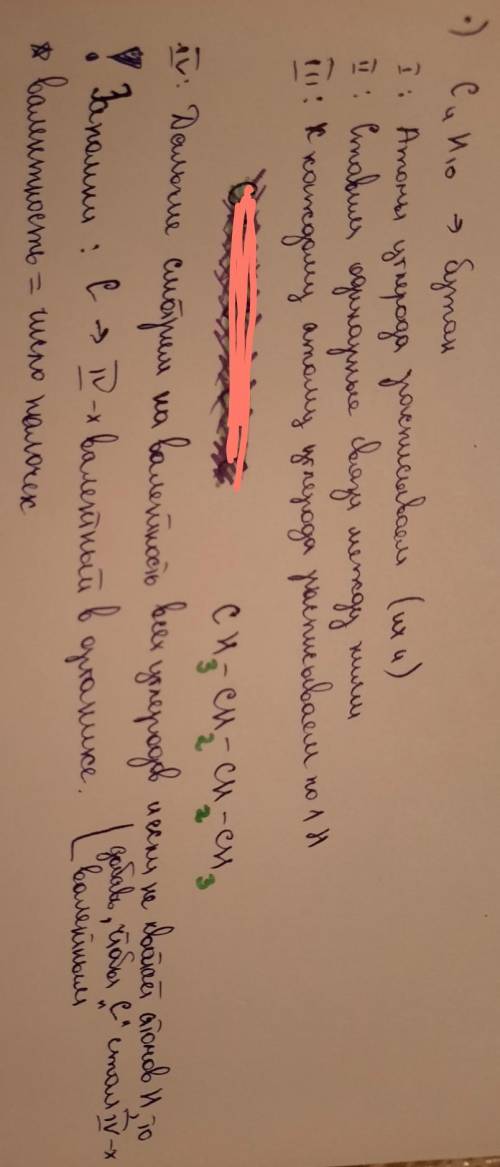 •) C4H10 → бутан
I: Атомы углерода расписываем (их 4)
II: Ставим одинарные связи между ними
III: К каждому атому углерода расписываем по 1 H
CH3-CH2-CH2-CH3
IV: Дальше смотрим на валентность всех углеродов и если не хватает атомов H, то
добавь, чтобы "C" стал IV-х
валентным
! Запомни: C → IV-х валентный в органике.
* валентность = число палочек